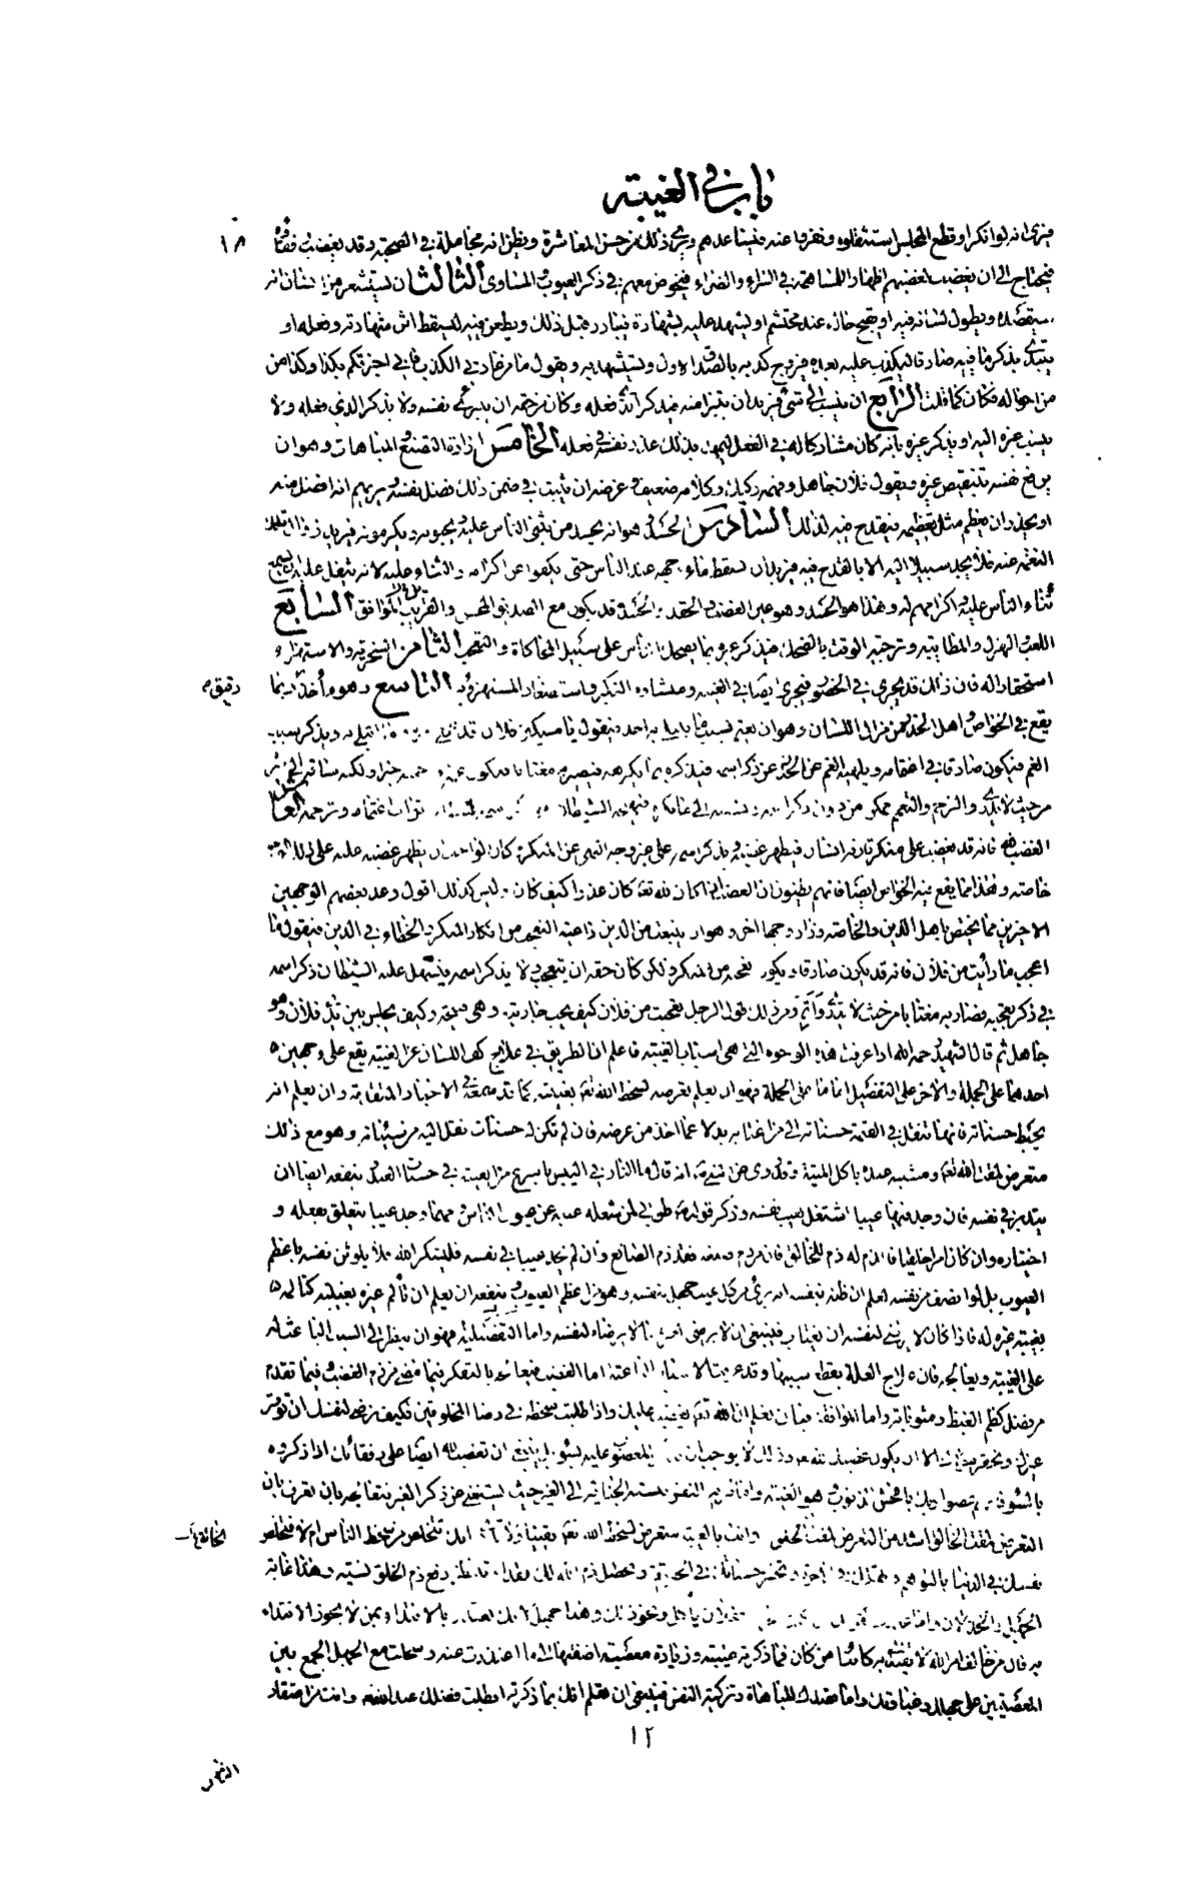 باب في الغيبة
فيرى انه لو انكر او قطع المجلس استثقلوه ونفروا عنه فيساعدهم ويرى ذلك من حسن المعاشرة ويظن انه مجاملة في الصحبة وقد يغضب رفقاؤه
فيحتاج الى ان يغضب لغضبهم اظهارا للمساهمة في السراء والضراء فيخوض معهم في ذكر العيوب والمساوي الثالث ان يستشعر من انسان انه
سيقصده ويطول لسانه فيه او يقبح حاله عند محتشم او يشهد عليه بشهادة فيبادر قبل ذلك ويطعن فيه ليسقط اثر شهادته وفعله او
يبتدي بذكر ما فيه صادقا ليكذب عليه بعده فيروج كذبه بالصدق الاول ويستشهد به ويقول ما من عادتي الكذب فاني اخبرتكم بكذا وكذا من
من احواله فكان كما قلت الرابع ان ينسب الى شيء فيريد ان يتبرا منه فيذكر انه فعله وكان من حقه ان يبرئ نفسه ولا يذكر الذي فعله ولا
ينسب غيره اليه او يذكر غيره بانه كان مشاركا له في الفعل ليمهد بذلك عذر نفسه في فعله الخامس ارادة التصنع والمباهات وهو ان
يرفع نفسه بتنقيص غيره ويقول فلان جاهل وفهمه ركيك وكلامه ضعيف وغرضه ان يثبت في ضمن ذلك فضل نفسه ويريهم انه افضل منه
او يحذر ان يعظم مثل تعظيمه فيقدح فيه لذلك السادس الحسد وهو انه يحسد من يثنى الناس عليه ويحبونه ويكرمونه فيريد زوال تلك
النعمة عنه فلا يجد سبيلا اليه الا بالقدح فيه فيريد ان يسقط ماء وجهه عند الناس حتى يكفوا عن اكرامه والثناء عليه لانه يثقل عليه ان يسمع
ثناء الناس عليه واكرامهم له وهذا هو الحسد وهو عين الغضب والحقد والحسد قد يكون مع الصديق المحسن والقريب الموافق السابع
اللعب والهزل والمطايبة وترجية الوقت بالضحك فيذكر غيره بما يضحك الناس على سبيل المحاكاة والتعجب الثامن السخرية والاستهزاء
استحقارا له فان ذلك قد يجري في الحضور فيجري ايضا في الغيبة ومنشاؤه التكبر واستصغار المستهزء به التاسع وهو مأخذ دقيق ربما
يقع في الخواص واهل الحذر من مزال اللسان وهو ان يغتم بسبب ما يبتلى به احد فيقول يا مسكين فلان قد غمني امره وما ابتلي به ويذكر سبب
الغم فيكون صادقا في اغتمامه ويلهيه الغم عن الحذر عن ذكر اسمه فيذكره بما يكرهه فيصير به مغتابا فيكون غمه ورحمته خيرا ولكنه ساقه الى شر
من حيث لا يدري والترحم والتغمم ممكن من دون ذكر اسمه ونسبته الى ما يكره فيهيجه الشيطان على ذكر اسمه ليبطل به ثواب اغتمامه وترحمه العاشر
الغضب لله فانه قد يغضب على منكر قارفه انسان فيظهر غضبه ويذكر اسمه على غير وجه النهي عن المنكر وكان الواجب ان يظهر غضبه عليه على ذلك الوجه
خاصة وهذا مما يقع فيه الخواص ايضا فانهم يظنون ان الغضب اذا كان لله تع كان عذرا كيف كان وليس كذلك اقول وعد بعضهم الوجهين
الاخيرين مما يختص باهل الدين والخاصة وزاد وجها اخر وهو ان ينبعث من الدين داعية التعجب من انكار المنكر والخطاء في الدين فيقول ما
اعجب ما رأيت من فلان فانه قد يكون صادقا ويكون تعجبه من المنكر ولكن كان حقه ان يتعجب ولا يذكر اسمه فيسهل عليه الشيطان ذكر اسمه
في ذكر تعجبه فصار به مغتابا من حيث لا يدري واثم ومن ذلك قول الرجل تعجبت من فلان كيف يحب جاريته وهي قبيحة وكيف يجلس بين يدي فلان وهو
جاهل ثم قال الشهيد رحمه الله اذا عرفت هذه الوجوه التي هي اسباب الغيبة فاعلم ان الطريق في علاج كف اللسان عن الغيبة يقع على وجهين
احدهما على الجملة والاخر على التفصيل اما ما على الجملة فهو ان يعلم تعرضه لسخط الله تع بغيبته كما قد سمعته في الاخبار المتقدمة وان يعلم انه
يحبط حسناته فانها تنقل في القيمة حسناته الى من اغتابه بدلا عما اخذ من عرضه فان لم تكن له حسنات نقل اليه من سيئاته وهو مع ذلك
متعرض لمقت الله تع ومشبه عنده باكل الميتة وقد روى عن النبي ص انه قال ما النار في اليبس باسرع من الغيبة في حسنات العبد وينفعه ايضا ان
يتدبر في نفسه فان وجد فيها عيبا اشتغل بعيب نفسه وذكر قوله ص طوبى لمن شغله عيبه عن عيوب الناس ومهما وجد عيبا يتعلق بفعله و
اختياره وان كان امرا خلقيا فالذم له ذم للخالق فان من ذم صنعة فقد ذم الصانع وان لم يجد عيبا في نفسه فليشكر الله ولا يلوثن نفسه باعظم
العيوب بل لو انصف من نفسه لعلم ان ظنه بنفسه انه برئ من كل عيب جهل بنفسه وهو من اعظم العيوب وينفعه ان يعلم ان تألم غيره بغيبته كتالمه
بغيبة غيره له فاذا كان لا يرضى لنفسه ان يغتاب فينبغي ان لا يرضى لغيره ما لا يرضاه لنفسه واما التفصيلية فهو ان ينظر الى السبب الباعث له
على الغيبة ويعالجه فان علاج العلة بقطع سببها وقد عرفت الاسباب الباعثة اما الغضب فيعالجه بالتفكر فيما مضى من ذم الغضب وفيما تقدم
من فضل كظم الغيظ ومثوباته واما الموافقة فبان تعلم ان الله تع يغضب عليك واذا طلبت سخطه في رضا المخلوقين فكيف ترضى لنفسك ان توقر
غيرك وتحقر مولاك الا ان يكون غضبك لله تع وذلك لا يوجب ان تذكر المغضوب عليه بسوء بل ينبغي ان تغضب لله ايضا على رفقائك اذا ذكروه
بالسوء فانهم عصوا ربك بافحش الذنوب وهو الغيبة واما تنزيه النفس بنسبة الجناية الى الغير حيث يستغنى عن ذكر الغير فتعالجه بان تعرف بان
التعرض لمقت الخالق اشد من التعرض لمقت الخلق وانت بالغيبة متعرض لسخط الله تع يقينا ولا تدري انك تتخلص من سخط الناس ام لا فتخلص
نفسك في الدنيا بالتوهم وتهلك في الاخرة وتخسر حسناتك في الحقيقة ويحصل ذم الله لك نقدا وتنتظر رفع ذم الخلق نسية وهذا غاية
الجهل والخذلان واما عذرك ان ياكل ونحو ذلك وهذا جهل لانك تعتذر بالاقتداء بمن لا يجوز الاقتداء
به فان من خالف امر الله لا يقتدى به كائنا من كان فما ذكرته غيبة وزيادة معصية اضفتها الى ما اعتذرت عنه وسجلت مع الجهل الجمع بين
المعصيتين على جهلك وغباوتك واما قصدك المباهاة وتزكية النفس فينبغي ان تعلم انك بما ذكرته ابطلت فضلك عند الله تع وانت من اعتقاد
١٢
الناس